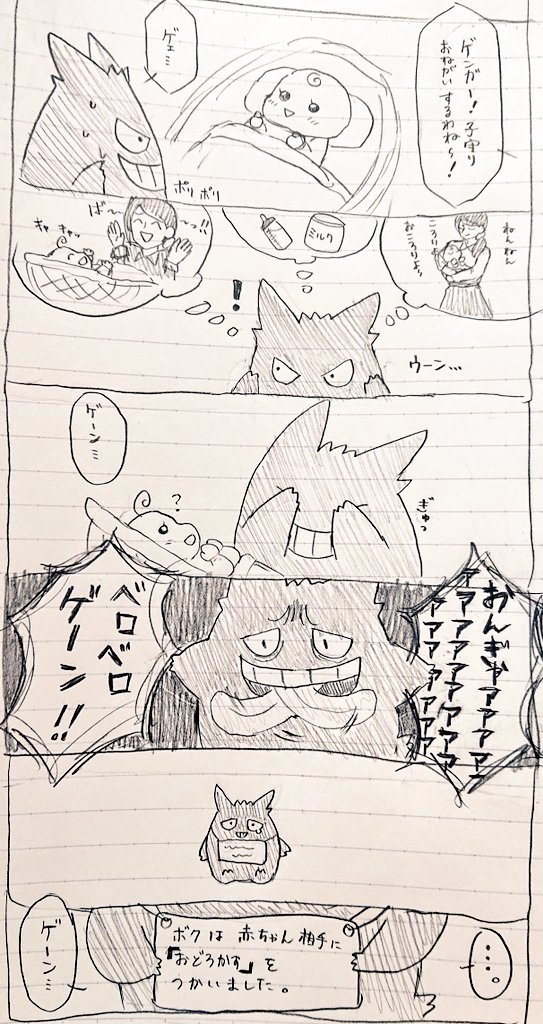 ゲンガー！子守り
おねがいするわね〜！
ゲェ…
ポリポリ
ねんねん
ころりよ
おころりよ〜
ミルク
ば〜〜っ!!
キャッキャッ
!
ウーン…
ぎゅっ
ゲーン…
?
おんぎゃアアアア
アヲアアアアアアア
アアアアアアアア
ベロベロ
ゲーン!!
・・・。
ボクは赤ちゃん相手に
『おどろかす』を
つかいました。
ゲーン…